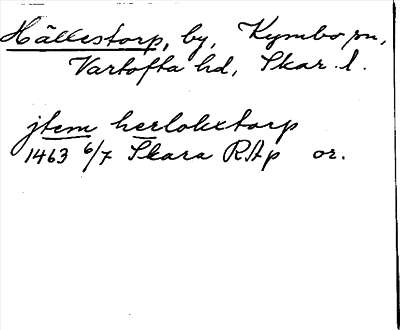 Hällestorp, by, Kymbo sn,
Vartofta hd, Skar. l.
jtem herloxtorp
1463 6/7 Skara RAp or.